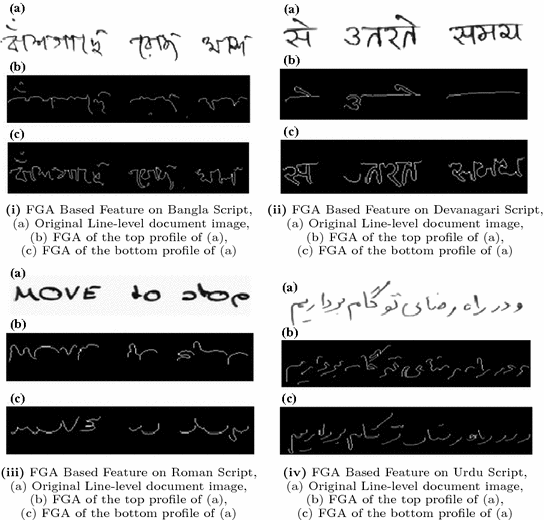 (a)
(b)
(c)
(i) FGA Based Feature on Bangla Script,
(a) Original Line-level document image,
(b) FGA of the top profile of (a),
(c) FGA of the bottom profile of (a)
(a)
से उतरते समय
(b)
(c)
(ii) FGA Based Feature on Devanagari Script,
(a) Original Line-level document image,
(b) FGA of the top profile of (a),
(c) FGA of the bottom profile of (a)
(a)
MOVE to stop
(b)
(c)
(iii) FGA Based Feature on Roman Script,
(a) Original Line-level document image,
(b) FGA of the top profile of (a),
(c) FGA of the bottom profile of (a)
(a)
و در راه رضای تو گام برداریم
(b)
(c)
(iv) FGA Based Feature on Urdu Script,
(a) Original Line-level document image,
(b) FGA of the top profile of (a),
(c) FGA of the bottom profile of (a)